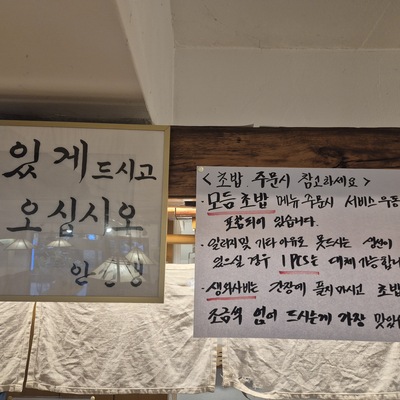 있게 드시고
오십시오
< 초밥 주문시 참고하세요 >
· 모듬초밥 메뉴 주문시 서비스 우동
포함되어 있습니다.
· 알러지및 기타 이유로 못드시는 생선이
있으실 경우 1 PCS는 대체 가능합니
· 생와사비는 간장에 풀지마시고 초밥
조금씩 얹어 드시는게 가장 맛있